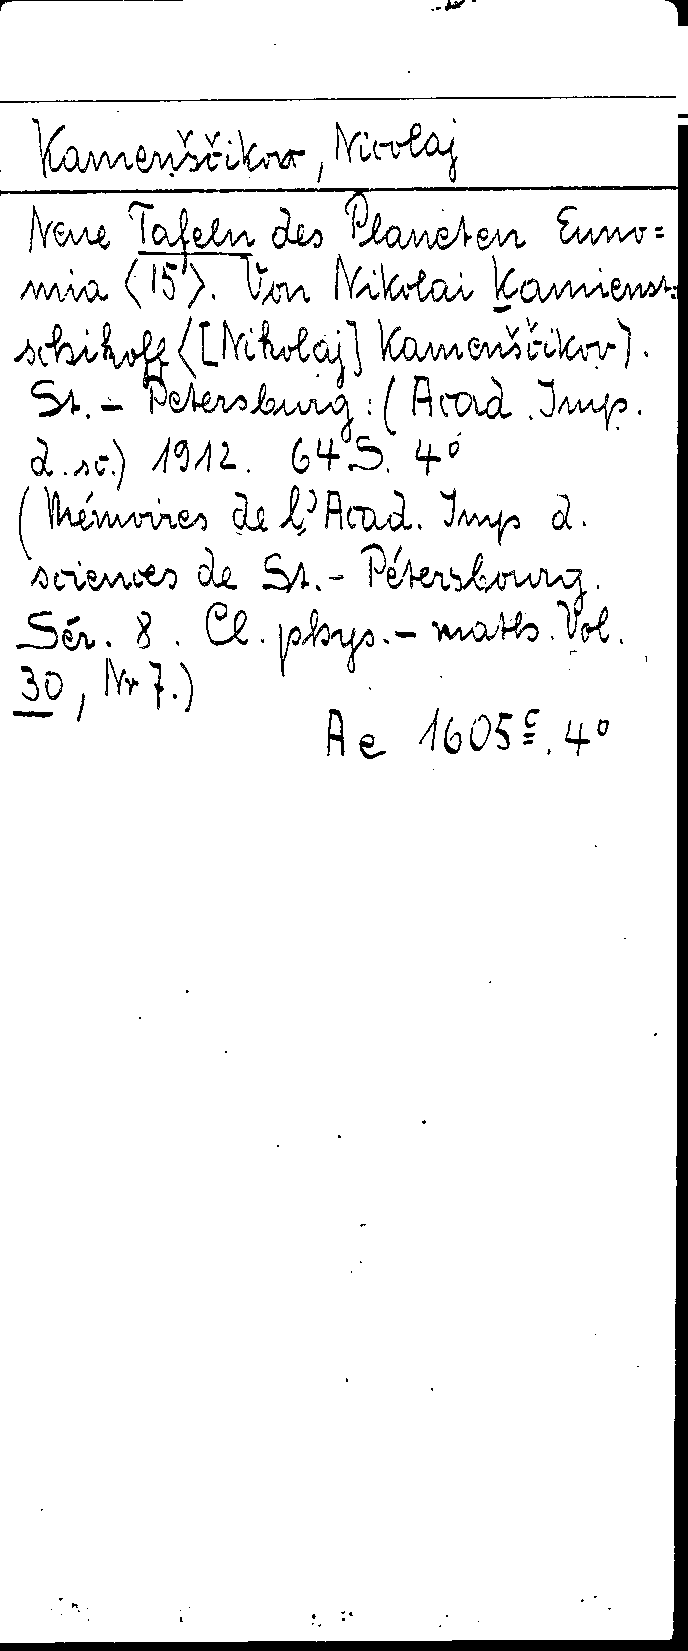 Kamenščikov, Nicolaj
Neue Tafeln des Planeten Euno=
mia <15>. Von Nikolai Kamienst=
schikoff <[Nikolaj] Kamenščikov>.
St.-Petersburg: (Acad. Imp.
d. sc.) 1912. 64 S. 4°
(Mémoires de l'Acad. Imp d.
sciences de St.-Pétersbourg.
Sér. 8. Cl. phys.-math. Vol.
30, Nr 7.)
Ae 1605c. 4°